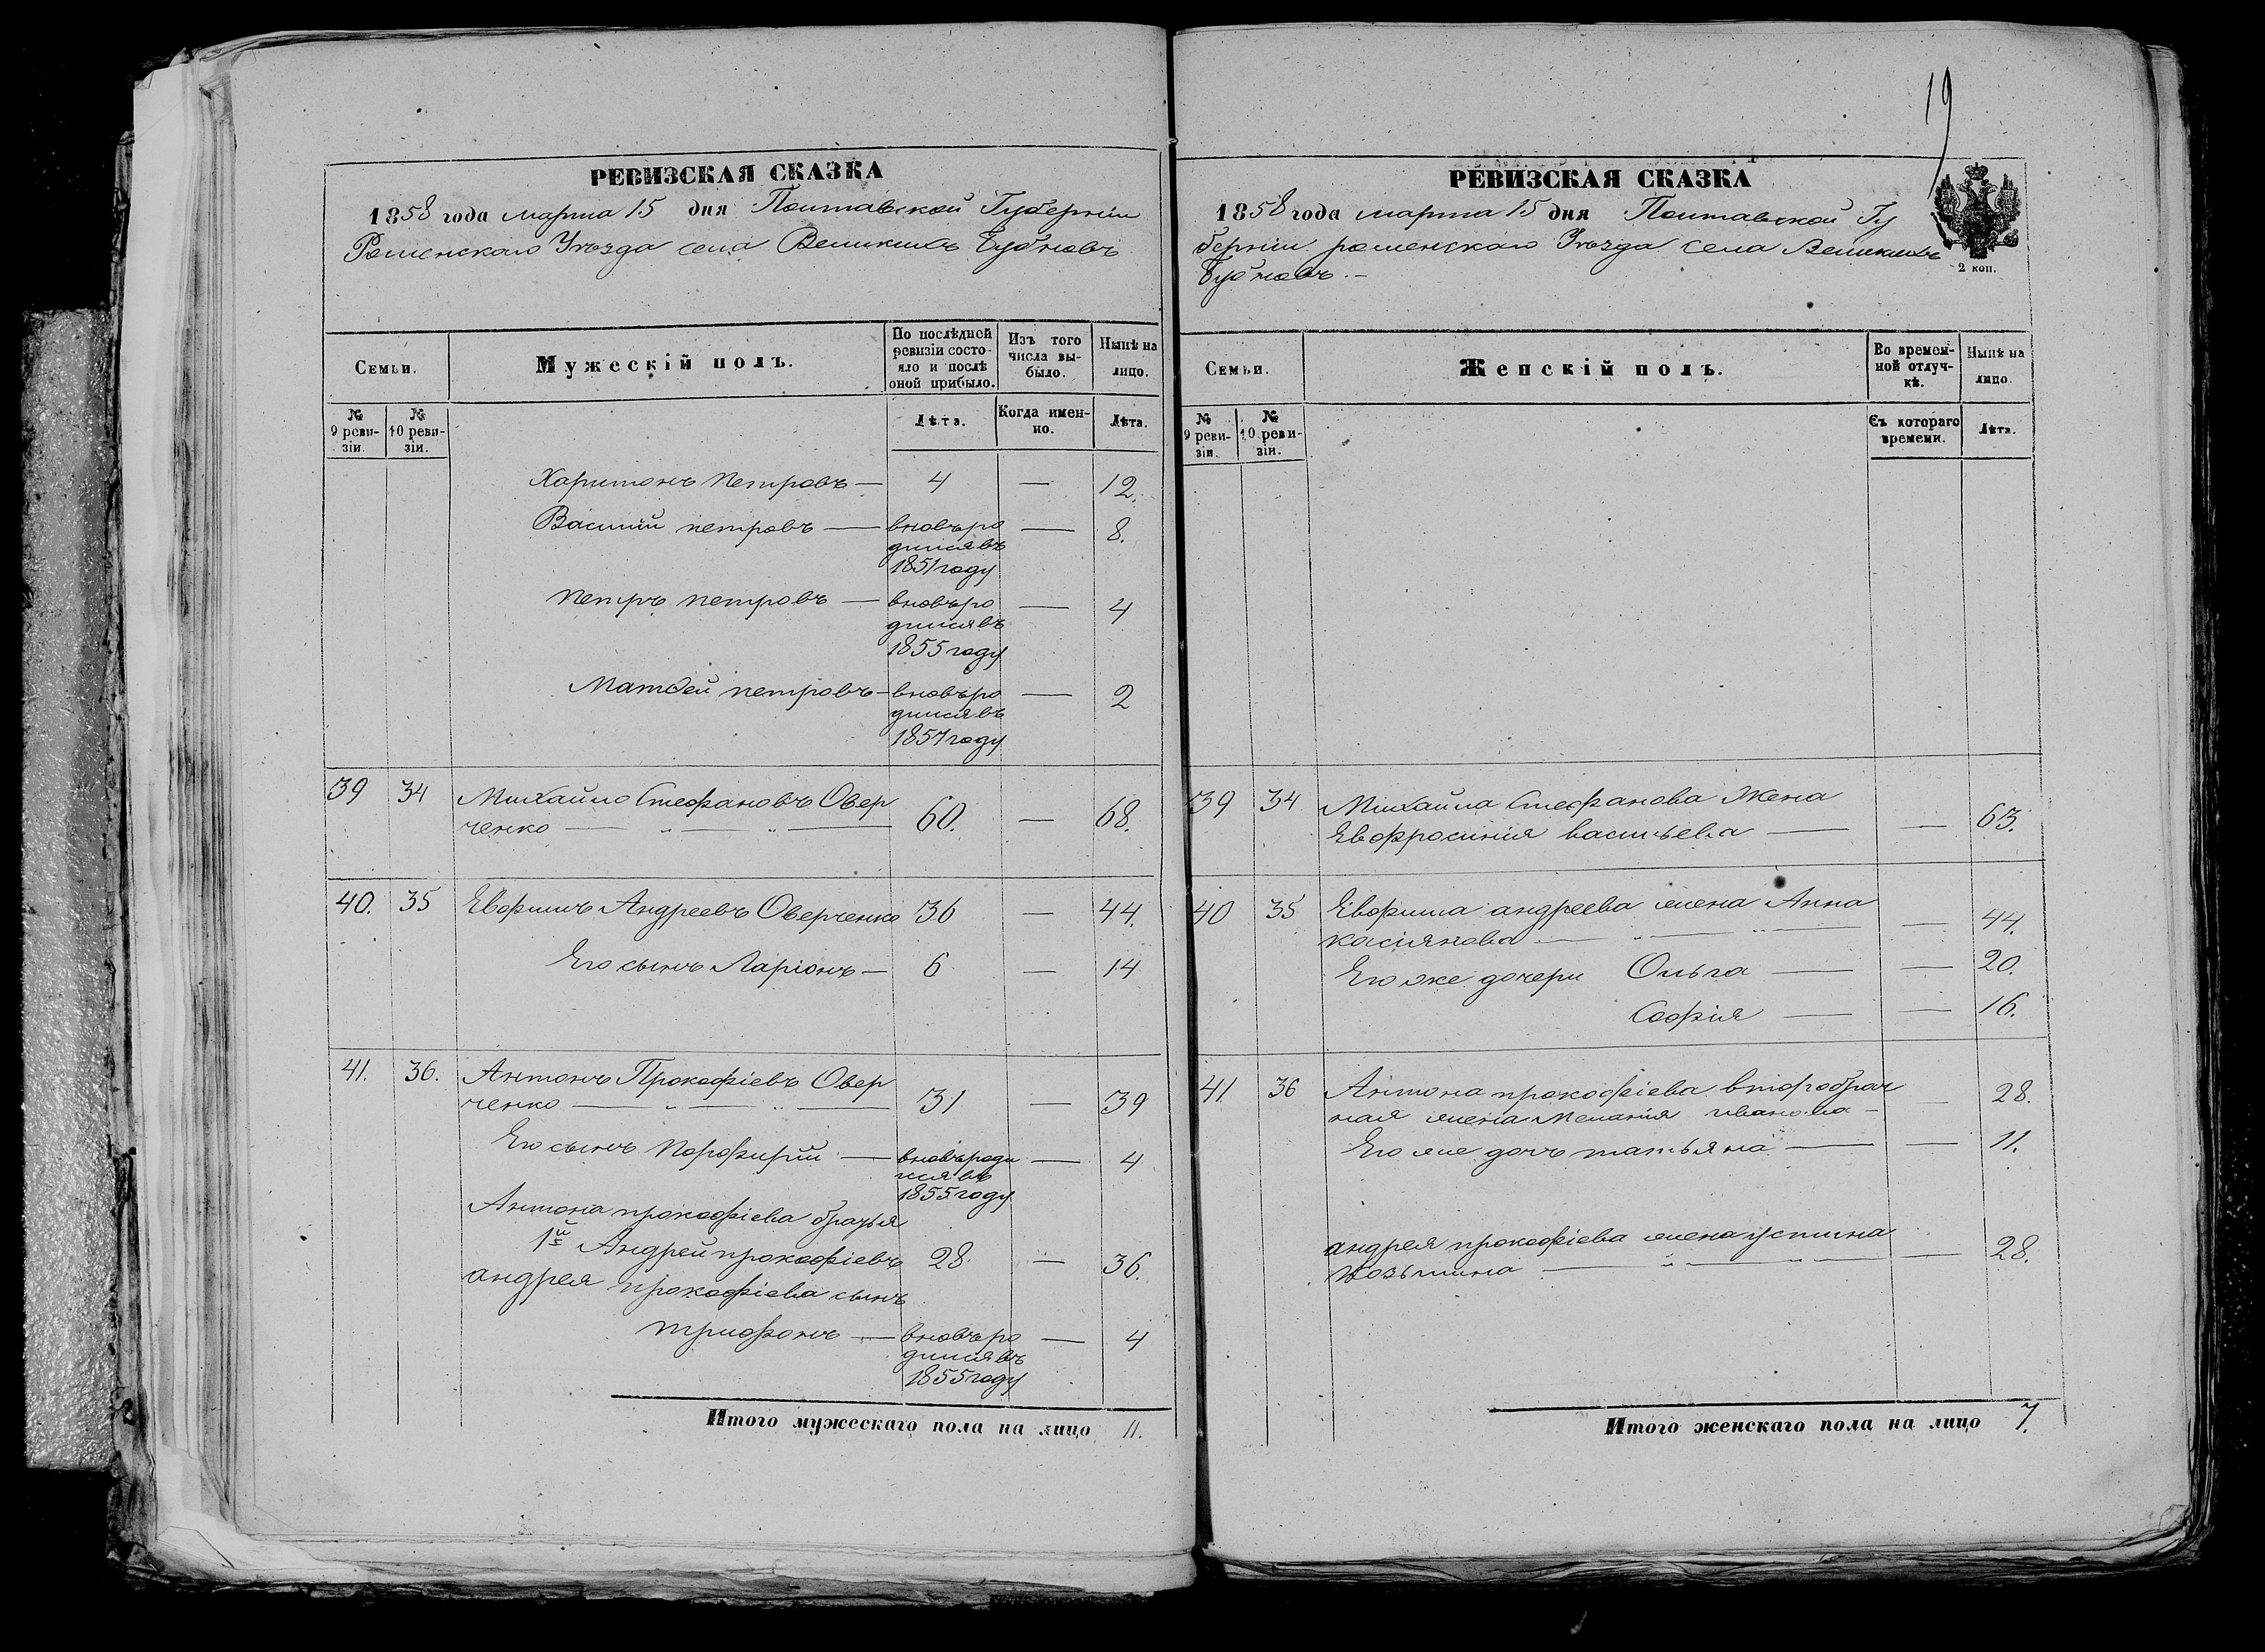 19
РЕВИЗСКАЯ СКАЗКА
1858 года марта 15 дня Полтавской Губерніи
Роменскаго Уѣзда села Великихъ Бубновъ
Семьи.
Мужескій полъ.
По послѣдней ревизіи состояло и послѣ оной прибыло.
Изъ того числа выбыло.
Нынѣ на лицо.
№ 9 ревизіи.
№ 10 ревизіи.
Лѣта.
Когда именно.
Лѣта.
Харитонъ петровъ — 4 — 12.
Василій петровъ — вновь ро — 8.
дился въ
1851 году
петръ петровъ — вновь ро — 4
дился въ
1855 году
Матвей петровъ — вновь ро — 2
дился въ
1857 году
39 34 Михайло Стефановъ Овер
ченко — „ — „ — 60. — 68.
40. 35 Евфимъ Андреевъ Оверченко 36 — 44.
Его сынъ Ларіонъ — 6 — 14
41. 36. Антонъ Прокофіевъ Овер
ченко — „ — „ — 31 — 39
Его сынъ Порфирій — вновь роди — 4
лся въ
1855 году
Антона прокофіева братья
1й Андрей прокофіевъ 28. — 36.
андрея прокофіева сынъ
трифонъ — вновь ро — 4
дился въ
1855 году
Итого мужескаго пола на лицо 11.
РЕВИЗСКАЯ СКАЗКА
1858 года марта 15 дня Полтавской Гу
берніи роменскаго Уѣзда села Великихъ
Бубновъ. —
2 коп.
Семьи.
Женскій полъ.
Во временной отлучкѣ.
Нынѣ на лицо.
№ 9 ревизіи.
№ 10 ревизіи.
Съ котораго времени.
Лѣта.
39 34 Михайла Стефанова Жена
Евфросинія васильева — — 63.
40 35 Евфима андреева жена Анна
касіянова — „ — „ — — 44.
Его же дочери Ольга — — 20.
Софія — — 16.
41 36 Антона прокофіева второбрач
ная жена Меланія иванова — — 28.
Его же дочь татьяна — — 11.
андрея прокофіева жена устина
козьмина — „ — „ — — 28.
Итого женскаго пола на лицо 7.